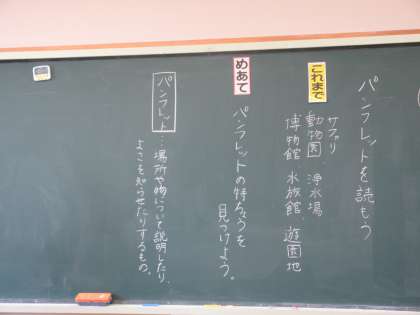 パンフレットを読もう
これまで
サファリ
動物園 浄水場
博物館 水族館 遊園地
めあて
パンフレットの特ちょうを
見つけよう。
パンフレット…場所や物について説明したり、
よさを知らせたりするもの。